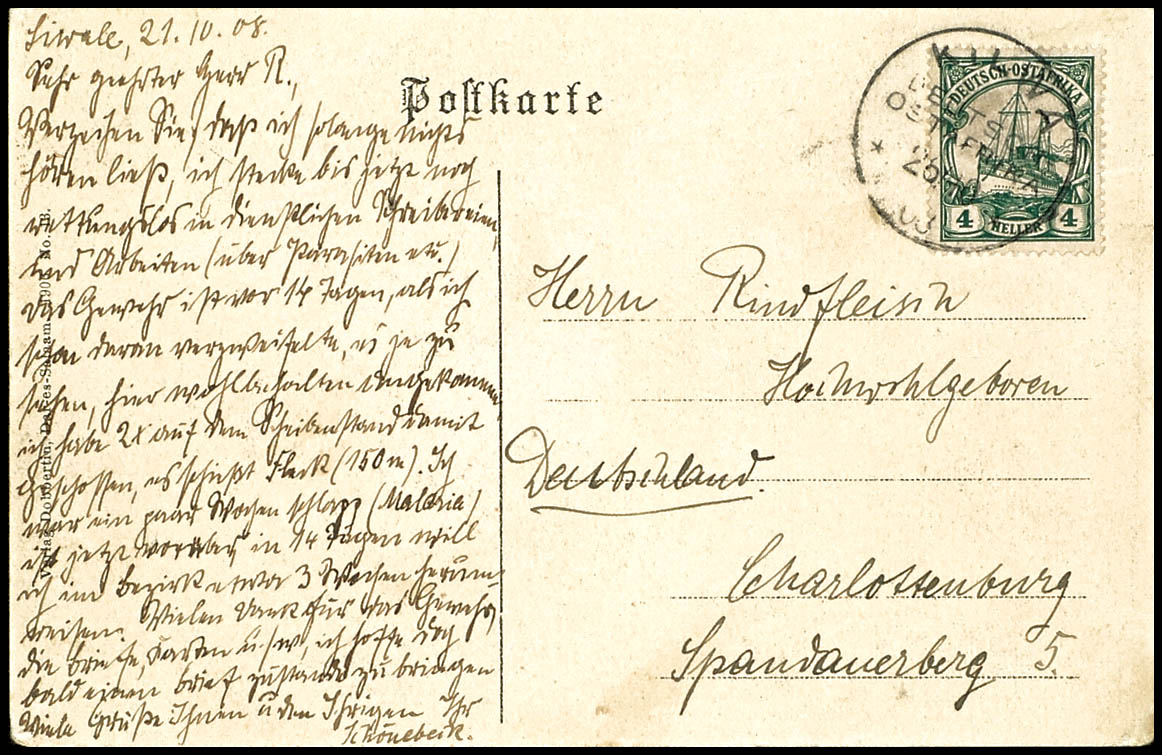 Liwale, 21.10.08.
Sehr geehrter Herr R.,
Verzeihen Sie, daß ich solange nichts
hören ließ, ich stecke bis jetzt noch
rettungslos in dienstlichen Schreibereien,
und Arbeiten (über Parasiten etc.)
Das Gewehr ist vor 14 Tagen, als ich
schon daran verzweifelte, es je zu
sehen, hier wohlbehalten angekommen
ich habe 2x auf dem Scheibenstand damit
geschossen, es schießt Fleck (150m). Ich
war ein paar Wochen schlapp (Malaria)
ist jetzt vorüber, in 14 Tagen will
ich im Bezirk etwa 3 Wochen herum
reisen. Vielen Dank für das Gewehr,
die Briefe, Karten u.s.w, ich hoffe doch
bald einen Brief zustande zu bringen
Viele Grüße Ihnen u den Ihrigen Ihr
Schönebeck.
Postkarte
KILWA
DEUTSCH-
OSTAFRIKA
DEUTSCH-OSTAFRIKA
4 HELLER 4
Herrn Rindfleisch
Hochwohlgeboren
Deutschland.
Charlottenburg
Spandauerberg 5.
Verlag Dobbertin, Dar-es-Salaam